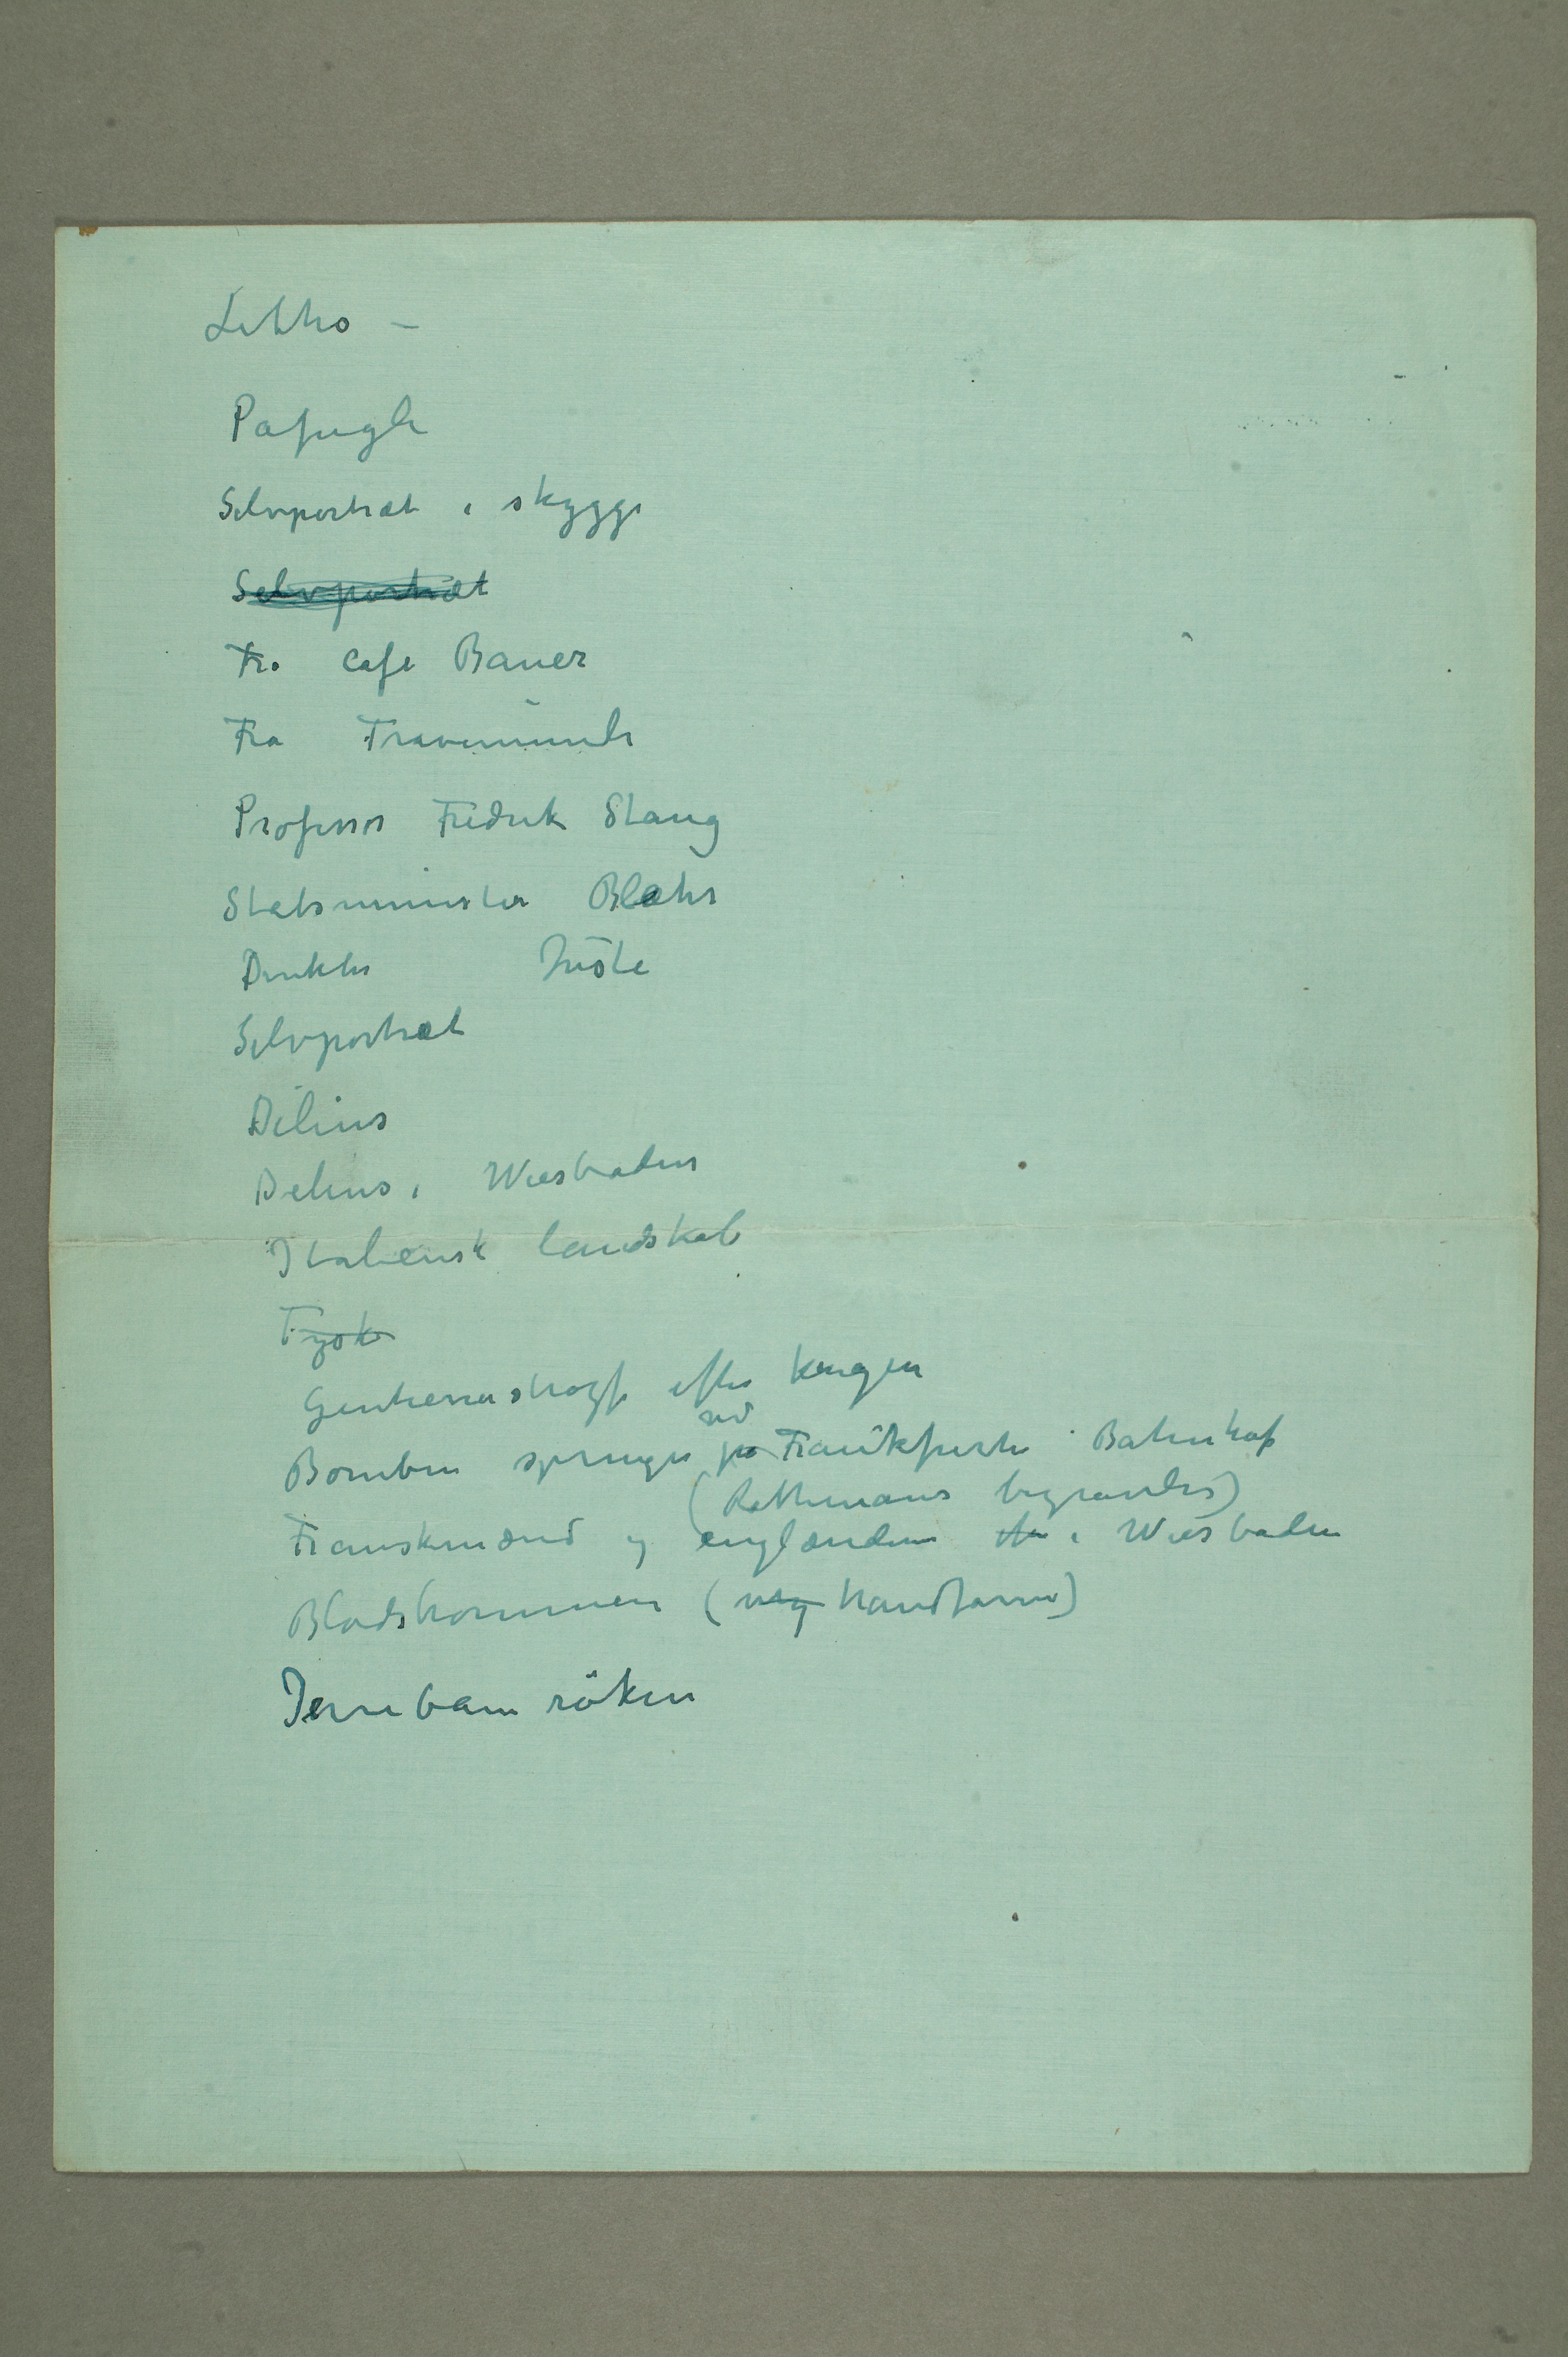 Litho –
Påfugle
Selvportræt i skygge
Selvportræt
Fra Cafe Bauer
Fra Travemünde
Professor Fredrik Stang
Statsminister Blehr
Direktør
Selvportræt
Delius
Delius i Wiesbaden
Italiensk landskab
Tysk
efter krigen
ved
Bomben springer på Frankfurter Bahnhof
(Rathenaus begravelse)
Franskmænd og englændere i Wiesbaden
Blodstrømmen (haandfarve)
Jernbanerøken